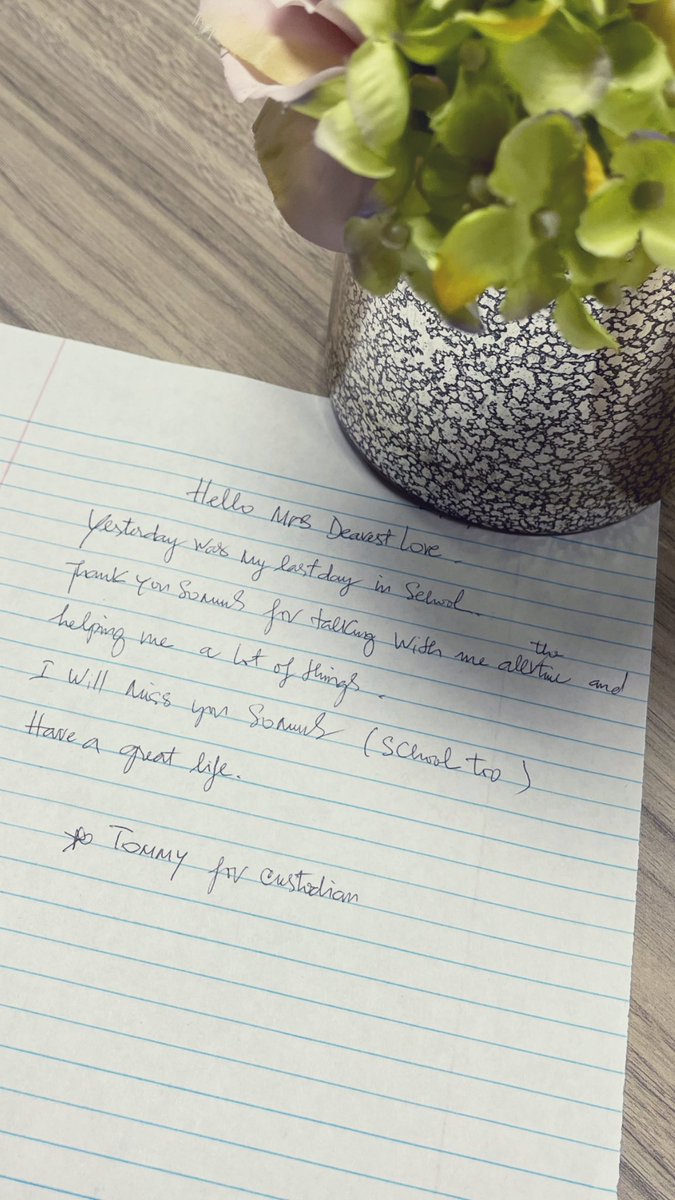 Hello Mrs Dearest Love.
Yesterday was my last day in School.
Thank you so much for talking with me all the time and
helping me a lot of things.
I will miss you so much (School too)
Have a great life.
Tommy for custodian